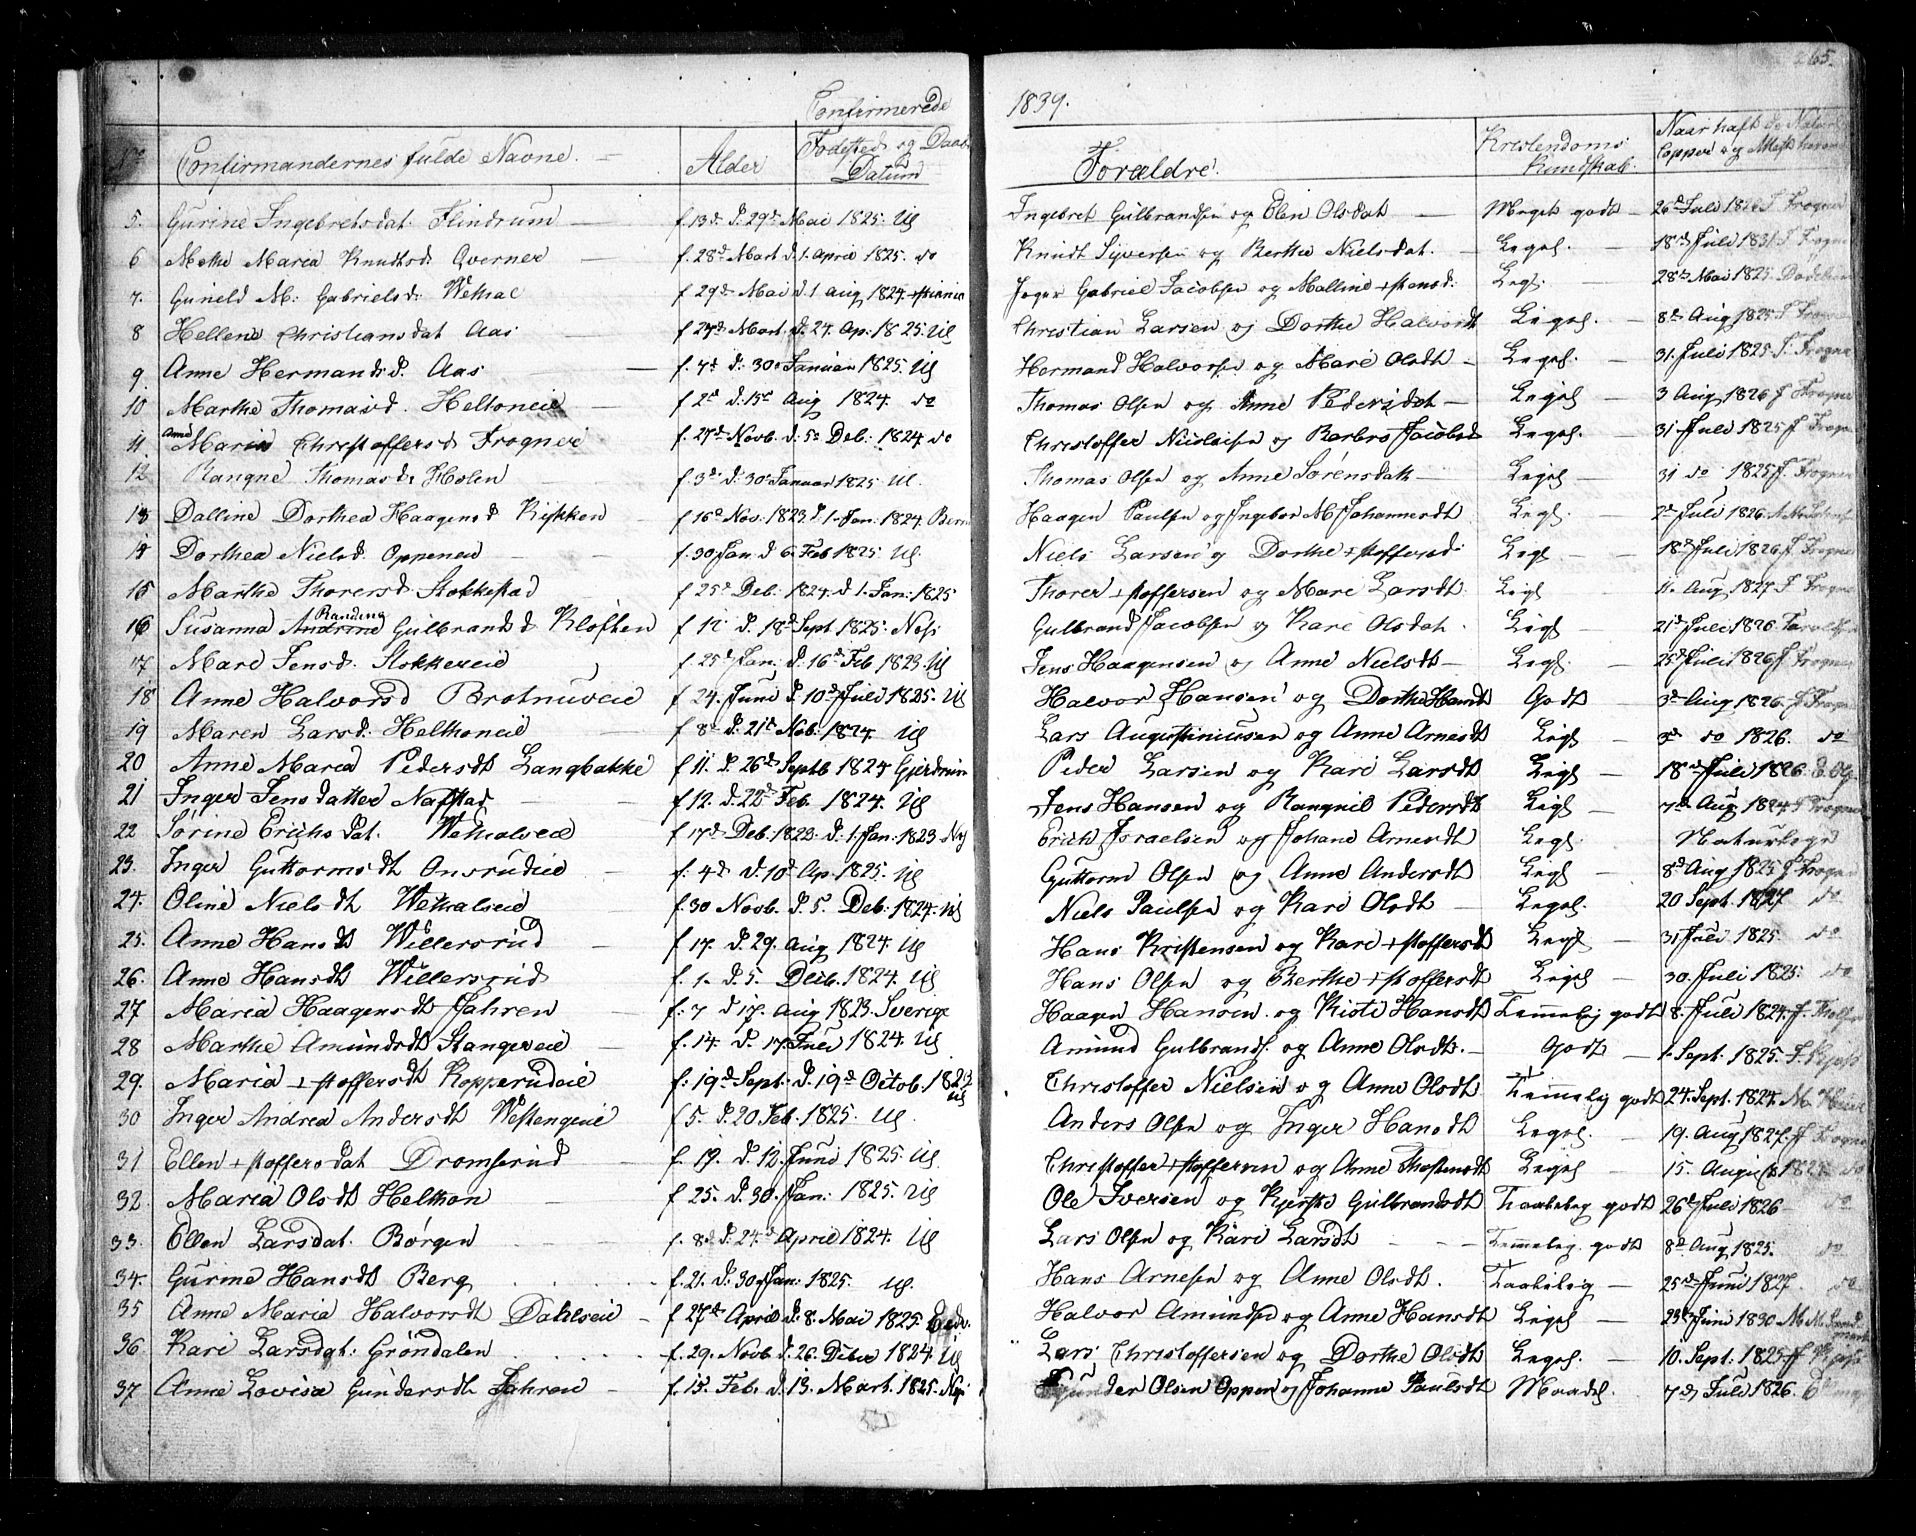 265.
Confirmerede 1839.
No Confirmandernes fulde Navne. Alder Fødested og Daabs Datum Forældre. Kristendoms Kundskab. Naar haft de Naturl Copper og Attest herom
5. Gurine Ingebretsdat. Flindrum f. 13de d. 29de Mai 1825. Ul Ingebret Gulbrandsen og Elen Olsdat Meget godt 26de Juli 1826 J. Frogner
6 Mathe Maria Knudtsd. Qverner f. 28de Mart d. 1. April 1825. do Knudt Syversen og Berthe Nielsdat. Ligel. 18de Juli 1831. J. Frogner
7. Guneld M. Gabrielsd. Wethal f 29de Mai d. 1 Aug 1824. Gabriel Jacobsen og Mallind +stensd. Ligl. 28de Mai 1825.
8 Hellene Christiansdat Aas f 27de Mart. d. 24. Ap. 1825. Ul Christian Larsen og Dorthe Halvordt Ligel. 8de Aug 1825 J Frogner
9. Anne Hermandsd. Aas f. 4de d. 30. Januar 1825. Ul Hermand Halvorsen og Mari Olsdt Ligel. 31. Juli 1825. J. Frogner
10 Marthe Thomasd. Heltoneie f. 2de d. 15de Aug 1824. do Thomas Olsen og Anne Pedersdat Ligel 3 Aug 1826 J Frogner
11. Ane Maria Christoffersd Frogneri f. 27de Novb. d. 5te Deb. 1824. do Christoffer Nicolaisen og Barbro Jacobsd Ligel. 31 Juli 1825 J Frogner
12 Rangne Thomasd. Holen f. 3de d. 30. Januar 1825. Ul. Thomas Olsen og Anne Sørensdatt Ligel 31 do 1825 J. Frogner
13 Dalline Dorthea Haagensd Kykken f 16de Nov. 1823. d. 1. Jan. 1824. Haagen Paulsen og Ingebor M. Johannesdt Ligl. 2de Juli 1826.
14 Dorthea Nielsd. Oppeneie f. 30 Jan. d 6. Feb 1825. Ul Niels Larsen og Dorthe +stoffersd. Ligl 18de Juli 1826 J Frogner
15 Marthe Thorersd. Stokkestad f. 25de Deb. 1824. d 1. Jan. 1825 Thorer +stoffersen og Mari Larsdt Ligl 11. Aug 1827 J. Frogner
16 Susanna Andrine Randine Gulbrandsd Kløften f 12 d. 18de Sept 1825. Nes Gulbrand Jacobsen og Kari Olsdat. Ligl 21de Juli 1826.
17 Mari Jensd. Stokkereie f 25de Jan. d. 16de Feb 1823. Ul Jens Haagensen og Anne Nielsdt Ligl. 25de Juli 1826 J Frogner
18 Anne Halvorsd Brotnuveie f 24. Juni d. 10de Juli 1825. Ul Halvor Hansen og Dorthe Hansdt Godt 3de Aug 1826. J Frogner
19 Maren Larsd. Helthoneie f 8de d. 21de Nob. 1824. Ul Lars Augustinussen og Anne Arnesdt Ligl 3de do 1826. do
20 Anne Maria Pedersdt Langbakke f 11. d. 26de Septb 1824 Gjerdrum Peder Larsen og Kari Larsdt Ligl 18de Juli 1826.
21 Inger Jensdatter Nafstad f 12. d. 22de Feb. 1824. Ul Jens Hansen og Ranquil Pedersdt Ligl 7de Aug 1824 J Frogner
22 Sørine Erichsdat. Wethalseie f 17de Deb. 1823. d. 1. Jan. 1823 Nes Erich Israelsen og Johane Arnesdt Ligl. Naturlige
23. Inger Guttormsdt Onsrudeie f. 4de d. 10de Ap. 1825. Ul Guttorm Olsen og Anne Andersdt Ligl 8de Aug 1825 J Frogner
24. Oline Nielsdt Wethalseie f. 30 Novb. d 5. Deb. 1824. Ul Niels Paulsen og Kari Olsdt Ligel. 20 Sept. 1827 do
25. Anne Hansdt Willersrud f 17. d. 29. Aug 1824. Ul Hans Kristensen og Kari +stoffersdt Ligl 31 Juli 1825. do
26. Anne Hansdt Willersrud f. 1. d. 5. Deb. 1824. Ul Hans Olsen og Berthe +stoffersdt Ligel 30. Juli 1825. do
27 Maria Haagensdt Jahren f. 7 d 17. Aug 1823. Sverige Haagen Hansen og Kisti Hansdt Temmelig godt 8. Juli 1824.
28 Marthe Amundsdt Stangeeie f. 14. d. 17. Juli 1824. Ul Amund Gulbrands. og Anne Olsdt. Godt 1. Sept. 1825.
29. Maria +stoffersdt Kopperudeie f. 19de Sept. d. 19de Octob. 1823 Ul Christoffer Nielsen og Anne Olsdt Temmelig godt 24. Sept. 1824.
30 Inger Andrea Andersdt Westengeie f 5. d. 20 Feb. 1825. Ul. Anders Olsen og Inger Hansdt Ligel. 19. Aug 1827. J Frogner
31 Ellen +stoffersdat Dromserud f. 19. d. 12. Juni 1825. Ul. Christoffer +stoffersen og Anne Thostensdt Ligel 15. August 1825 do
32. Maria Olsdt Helthon f. 25. d. 30. Jan. 1825. Ul Ole Iversen og Kjersti Gulbrandsdt Taalelig godt 26de Juli 1826 do
33. Ellen Larsdat. Børgen f. 8de d. 24de April 1824. Ul Lars Olsen og Kari Larsdt Temmelig godt 8de Aug 1825. do
34. Gurine Hansdt Berg f. 21. d. 30 Jan. 1825. Ul. Hans Arnesen og Anne Olsdt. Taalelig 25de Juni 1827. do
35 Anne Maria Halvorsdt Dahlseie f 27de April d. 8. Mai 1825. Halvor Amundsen og Anne Hansdt Ligel 23de Juni 1830
36. Kari Larsdat. Grøndalen f. 29. Novb. d. 26. Deber 1824. Ul Lars Christoffersen og Dorthe Olsdt Ligel. 10. Sept. 1825
37 Anne Lovisa Gundersdt Jahren f. 15. Feb. d. 13. Mart. 1825. Nes Gunder Olsen Oppen og Johanne Paulsdt Maadel. 7de Juli 1826.